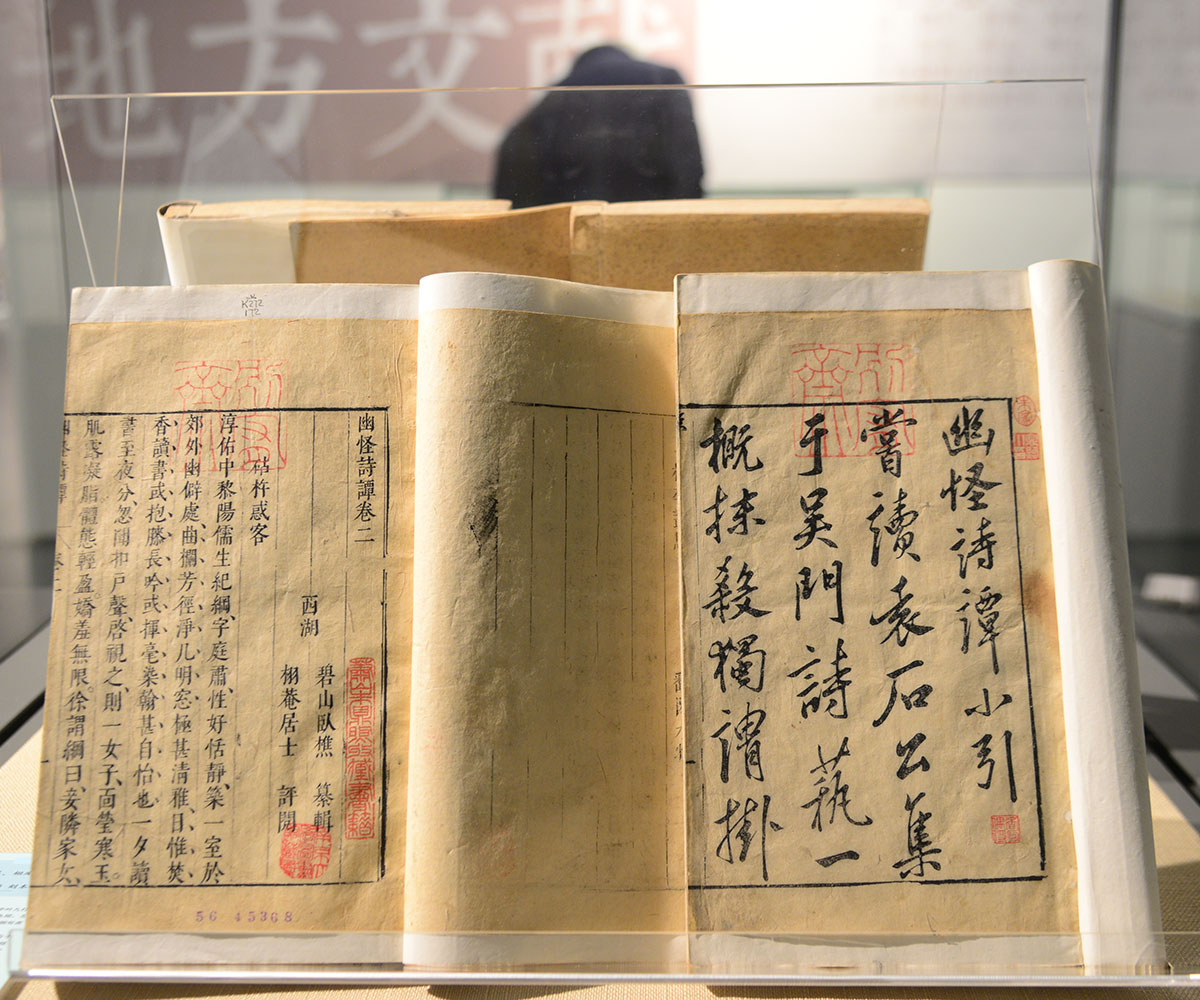 地方文献
幽怪詩譚小引
嘗讀袁石公集
于吴門詩蓺一
概抹殺獨謂掛
幽怪詩譚卷二
西湖
碧山臥樵 纂輯
栩菴居士 評閱
枯杵惑客
淳佑中黎陽儒生紀綱、字庭肅、性好恬靜、築一室於
郊外幽僻處、曲欄芳徑、淨几明窓、極甚清雅、日惟焚
香讀書、或抱膝長吟、或揮毫染翰、甚自怡也、一夕讀
書至夜分、忽聞扣戶聲、啓視之、則一女子、面瑩寒玉、
肌露凝脂、體態輕盈、嬌羞無限。徐謂綱曰、妾隣家女、
K212
172
56 45368